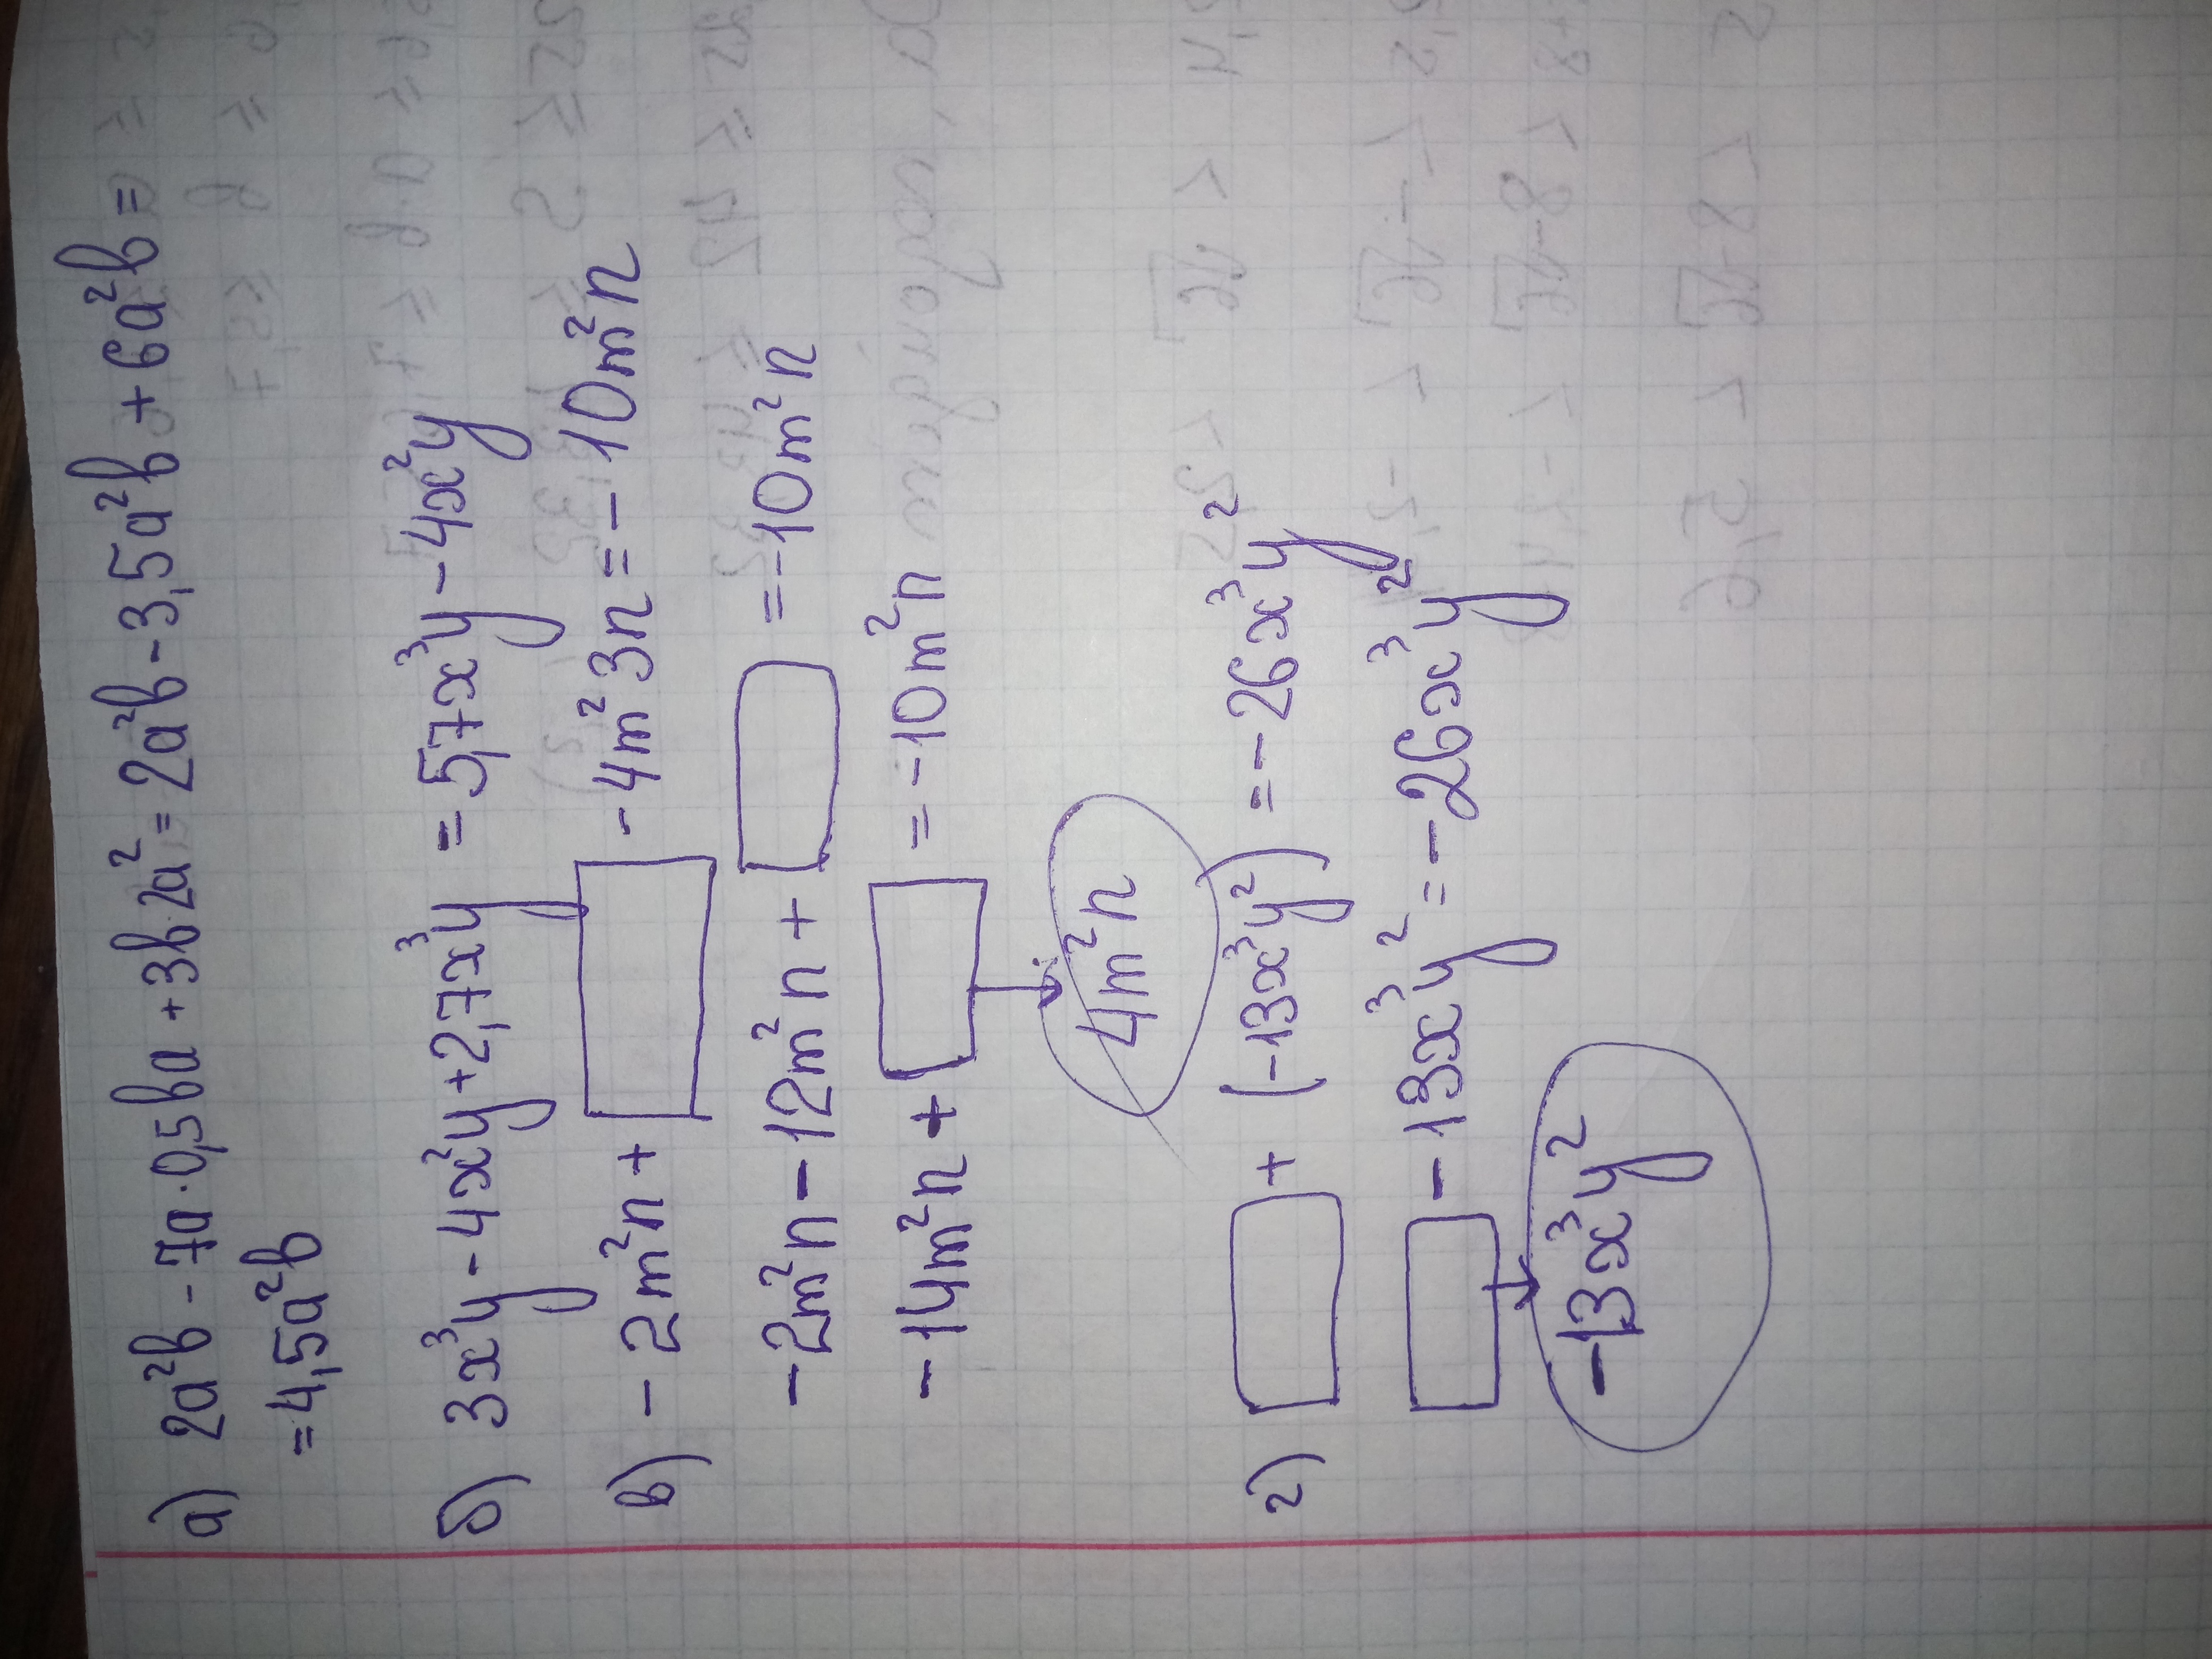 а) 2a²b - 7a·0,5ba + 3b·2a² = 2a²b - 3,5a²b + 6a²b =
= 4,5a²b
б) 3x³y - 4x²y + 2,7x³y = 5,7x³y - 4x²y
в) - 2m²n + □ - 4m²3n = - 10m²n
- 2m²n - 12m²n + □ = - 10m²n
- 14m²n + □ = - 10m²n
4m²n
г) □ + (-13x³y²) = - 26x³y²
□ - 13x³y² = - 26x³y²
- 13x³y²